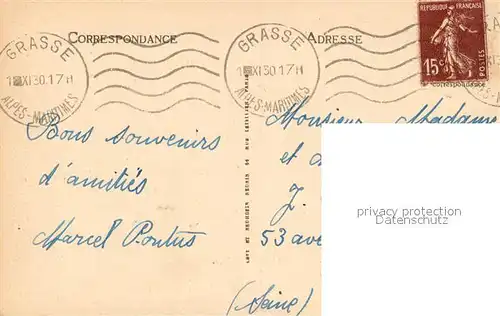 CORRESPONDANCE
ADRESSE
GRASSE
XI 30. 17H
ALPES-MARITIMES
GRASSE
XI 30. 17H
ALPES-MARITIMES
REPUBLIQUE FRANÇAISE
15c
POSTES
Correspondance
Bons souvenirs
d'amitiés
Marcel Pontus
Monsieur Madame
et
J.
53 ave
(Seine)
privacy protection
copyright by